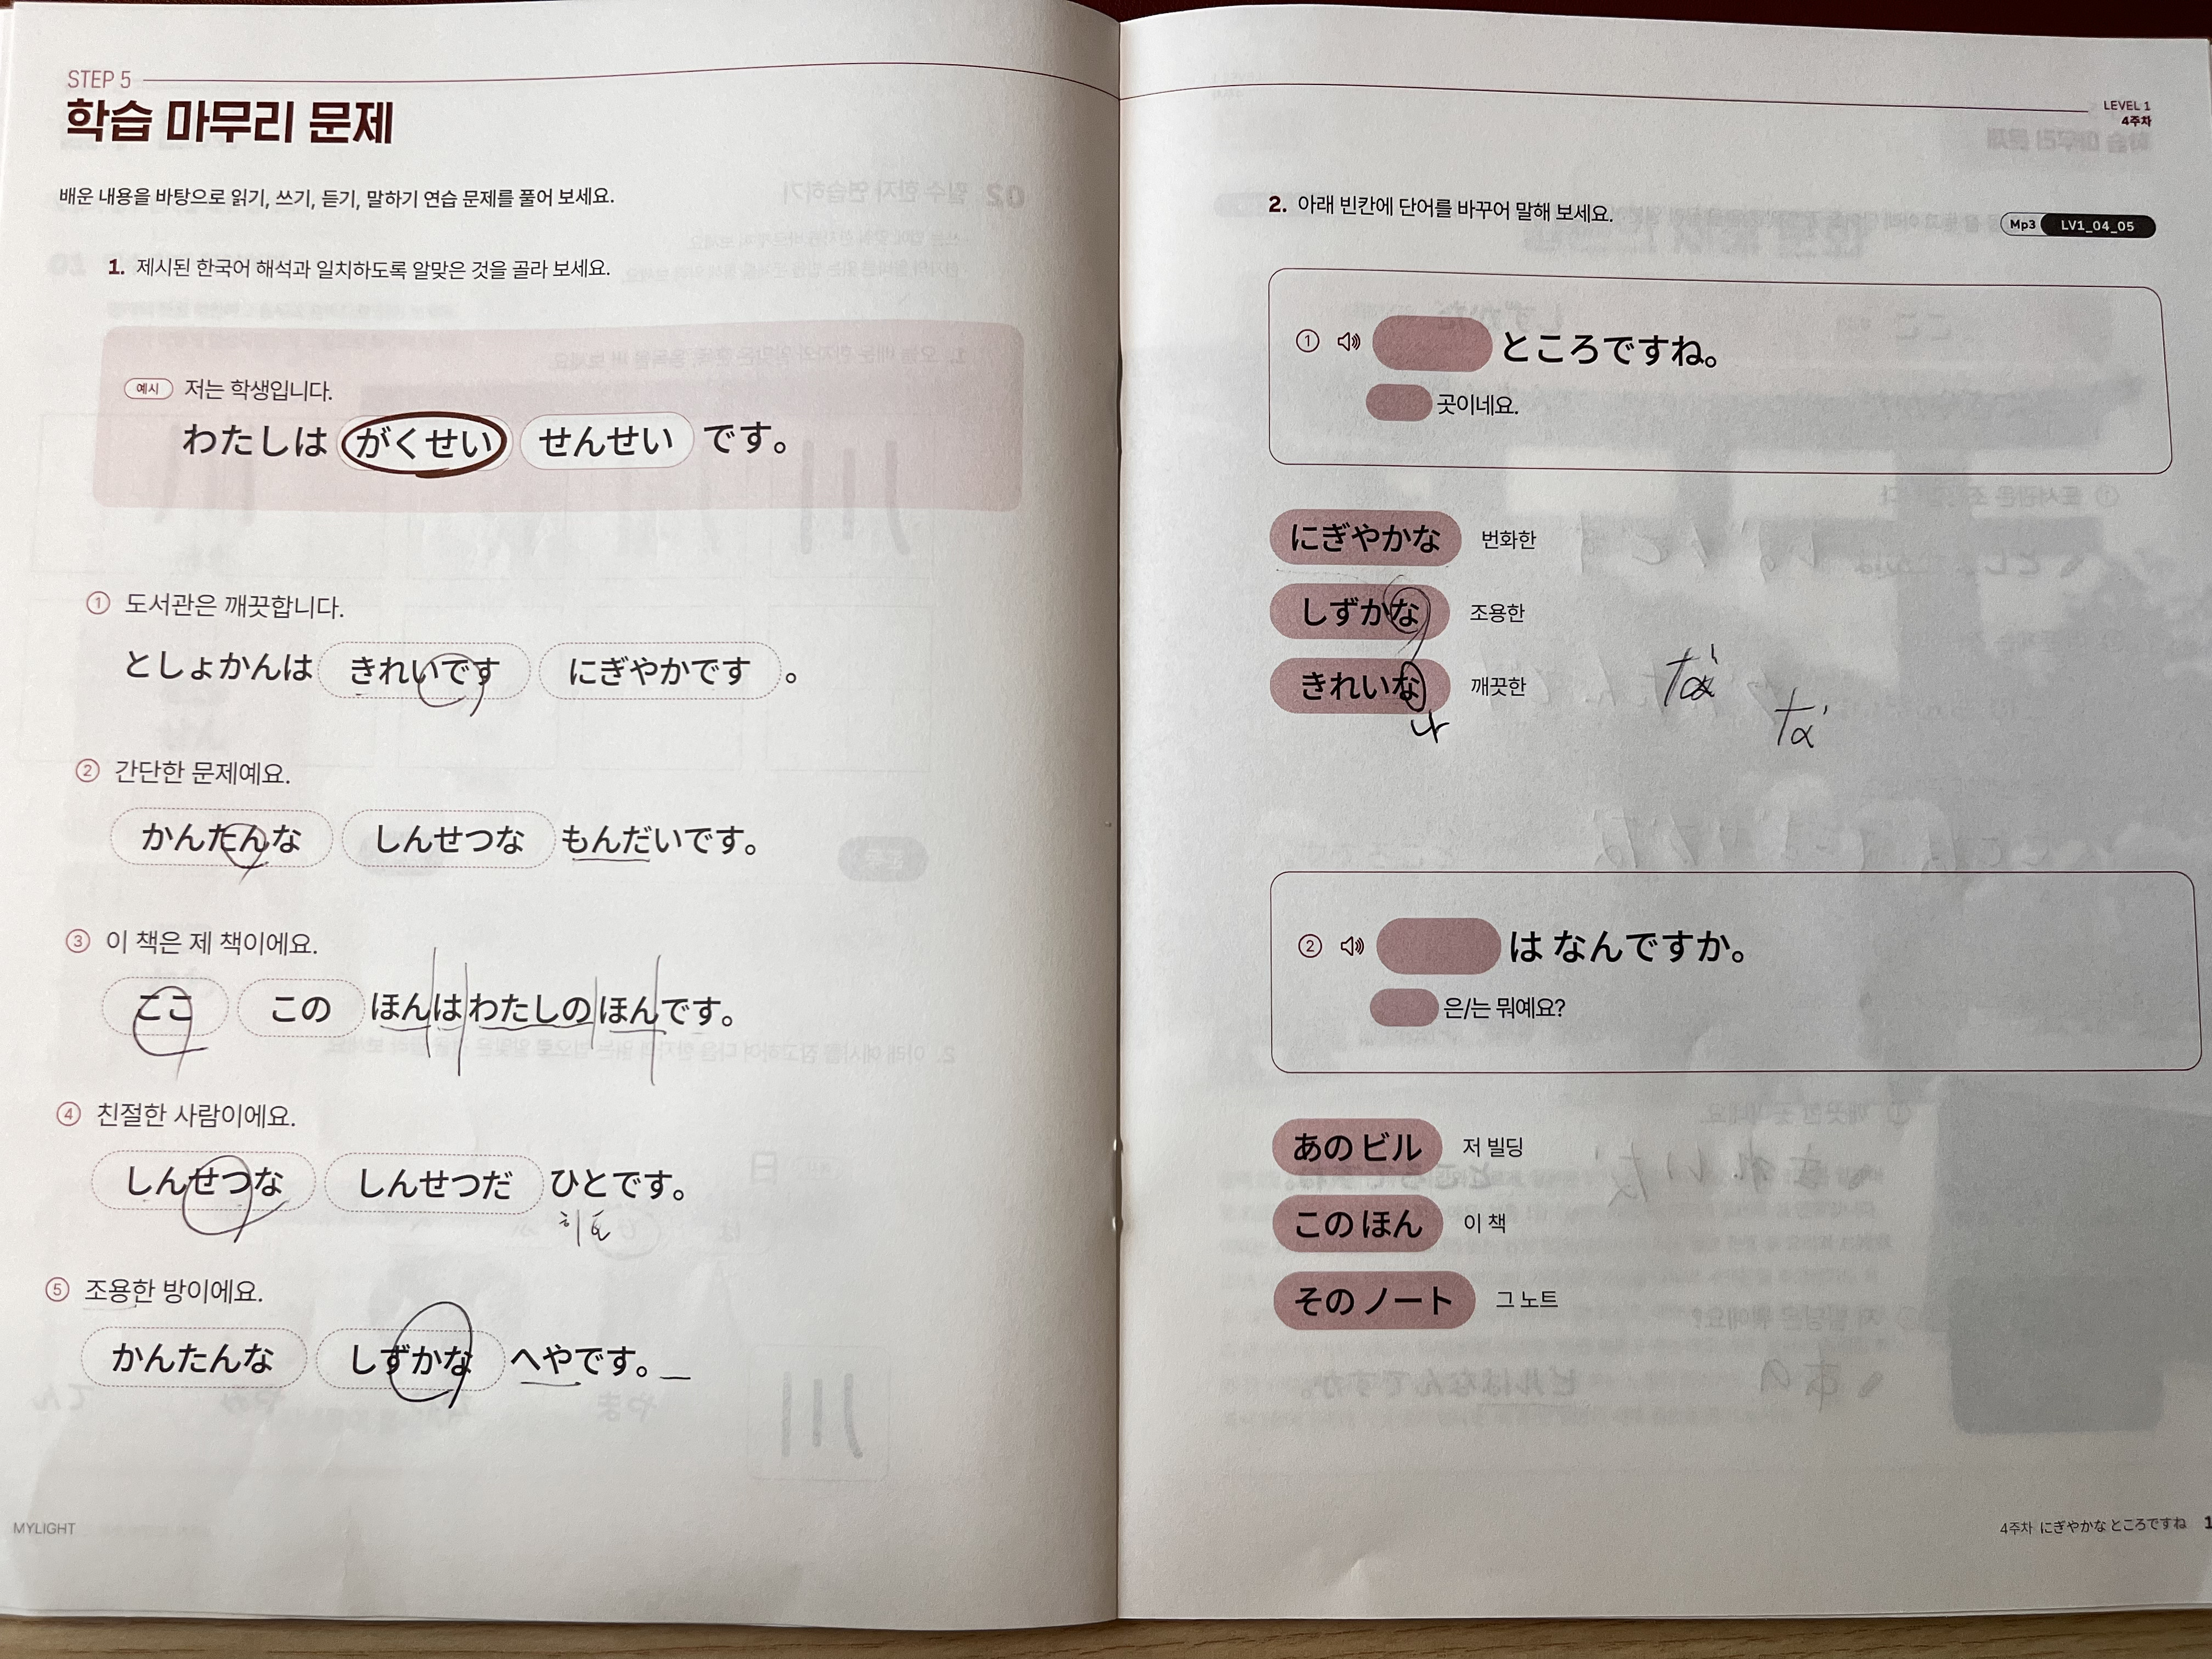 STEP 5
학습 마무리 문제
배운 내용을 바탕으로 읽기, 쓰기, 듣기, 말하기 연습 문제를 풀어 보세요.
1. 제시된 한국어 해석과 일치하도록 알맞은 것을 골라 보세요.
예시 저는 학생입니다.
わたしは がくせい せんせい です。
① 도서관은 깨끗합니다.
としょかんは きれいです にぎやかです 。
② 간단한 문제예요.
かんたんな しんせつな もんだいです。
③ 이 책은 제 책이에요.
ここ この ほんは わたしの ほんです。
④ 친절한 사람이에요.
しんせつな しんせつだ ひとです。
히토
⑤ 조용한 방이에요.
かんたんな しずかな へやです。
MYLIGHT
LEVEL 1
4주차
2. 아래 빈칸에 단어를 바꾸어 말해 보세요.
Mp3 LV1_04_05
① ところですね。
곳이네요.
にぎやかな 번화한
しずかな 조용한
きれいな 깨끗한
な
な
② は なんですか。
은/는 뭐예요?
あの ビル 저 빌딩
この ほん 이 책
その ノート 그 노트
4주차 にぎやかな ところですね